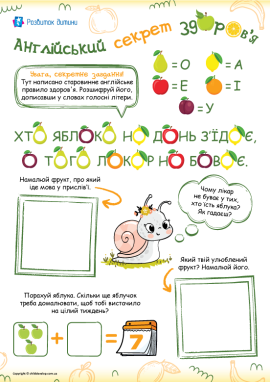 Розвиток дитини
Англійський секрет здоров'я
Увага, секретне завдання!
Тут написано старовинне англійське
правило здоров'я. Розшифруй його,
дописавши у словах голосні літери.
=О =А
=Е =І
=У
ХТ ЯБЛ К Н Д НЬ З'ЇД Є,
Т Г Л К Р Н Б В Є.
Намалюй фрукт, про який
іде мова у прислів'ї.
Чому лікар
не буває у тих,
хто їсть яблука?
Як гадаєш?
Який твій улюблений
фрукт? Намалюй його.
Порахуй яблука. Скільки ще яблучок
треба домалювати, щоб тобі вистачило
на цілий тиждень?
+ = 7